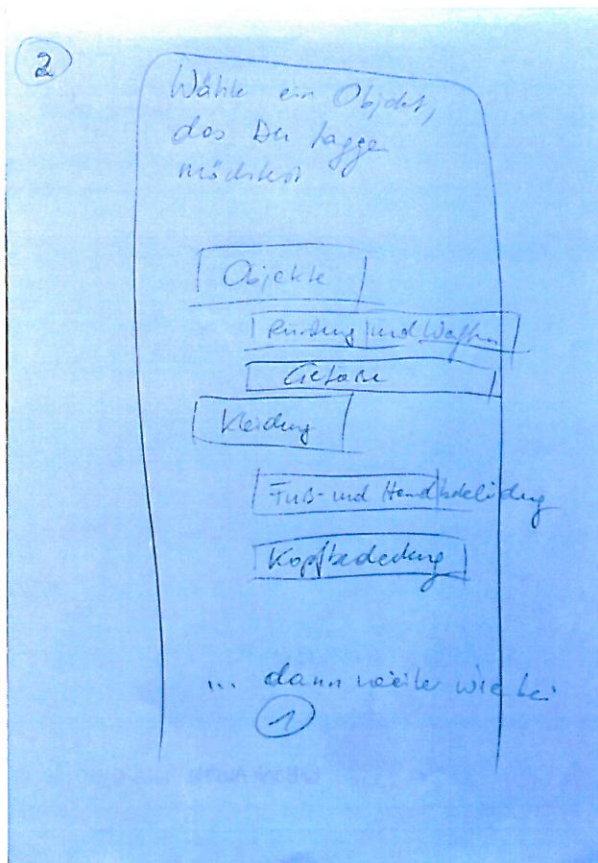 2
Wähle ein Objekt,
das Du taggen
möchtest
Objekte
Rüstung und Waffen
Gefäße
Kleidung
Fuß- und Handbekleidung
Kopfbedeckung
... dann weiter wie bei
1